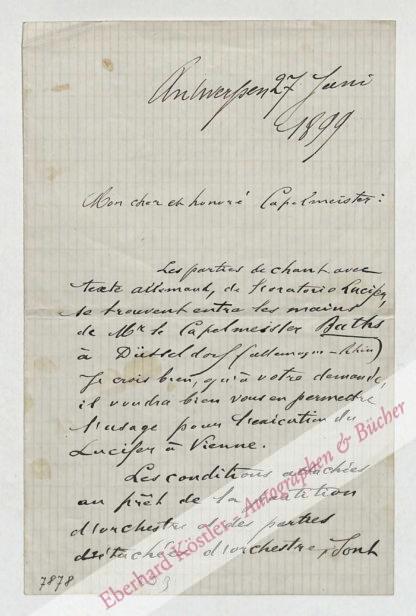 Antwerpen 27 Juni
1899
Mon cher et honoré Capelmeister:
Les parties de chant avec
texte allemand, de l'oratorio Lucifer,
se trouvent entre les mains
de Mr le Capelmeister Buths
à Düsseldorf (allemagne-Rhin)
Je crois bien, qu'à votre demande,
il voudra bien vous en permettre
l'usage pour l'exécution du
Lucifer à Vienne.
Les conditions attachées
au prêt de la partition
d'orchestre et des parties
détachées d'orchestre, sont
7878
Eberhard Köstler - Autographen & Bücher